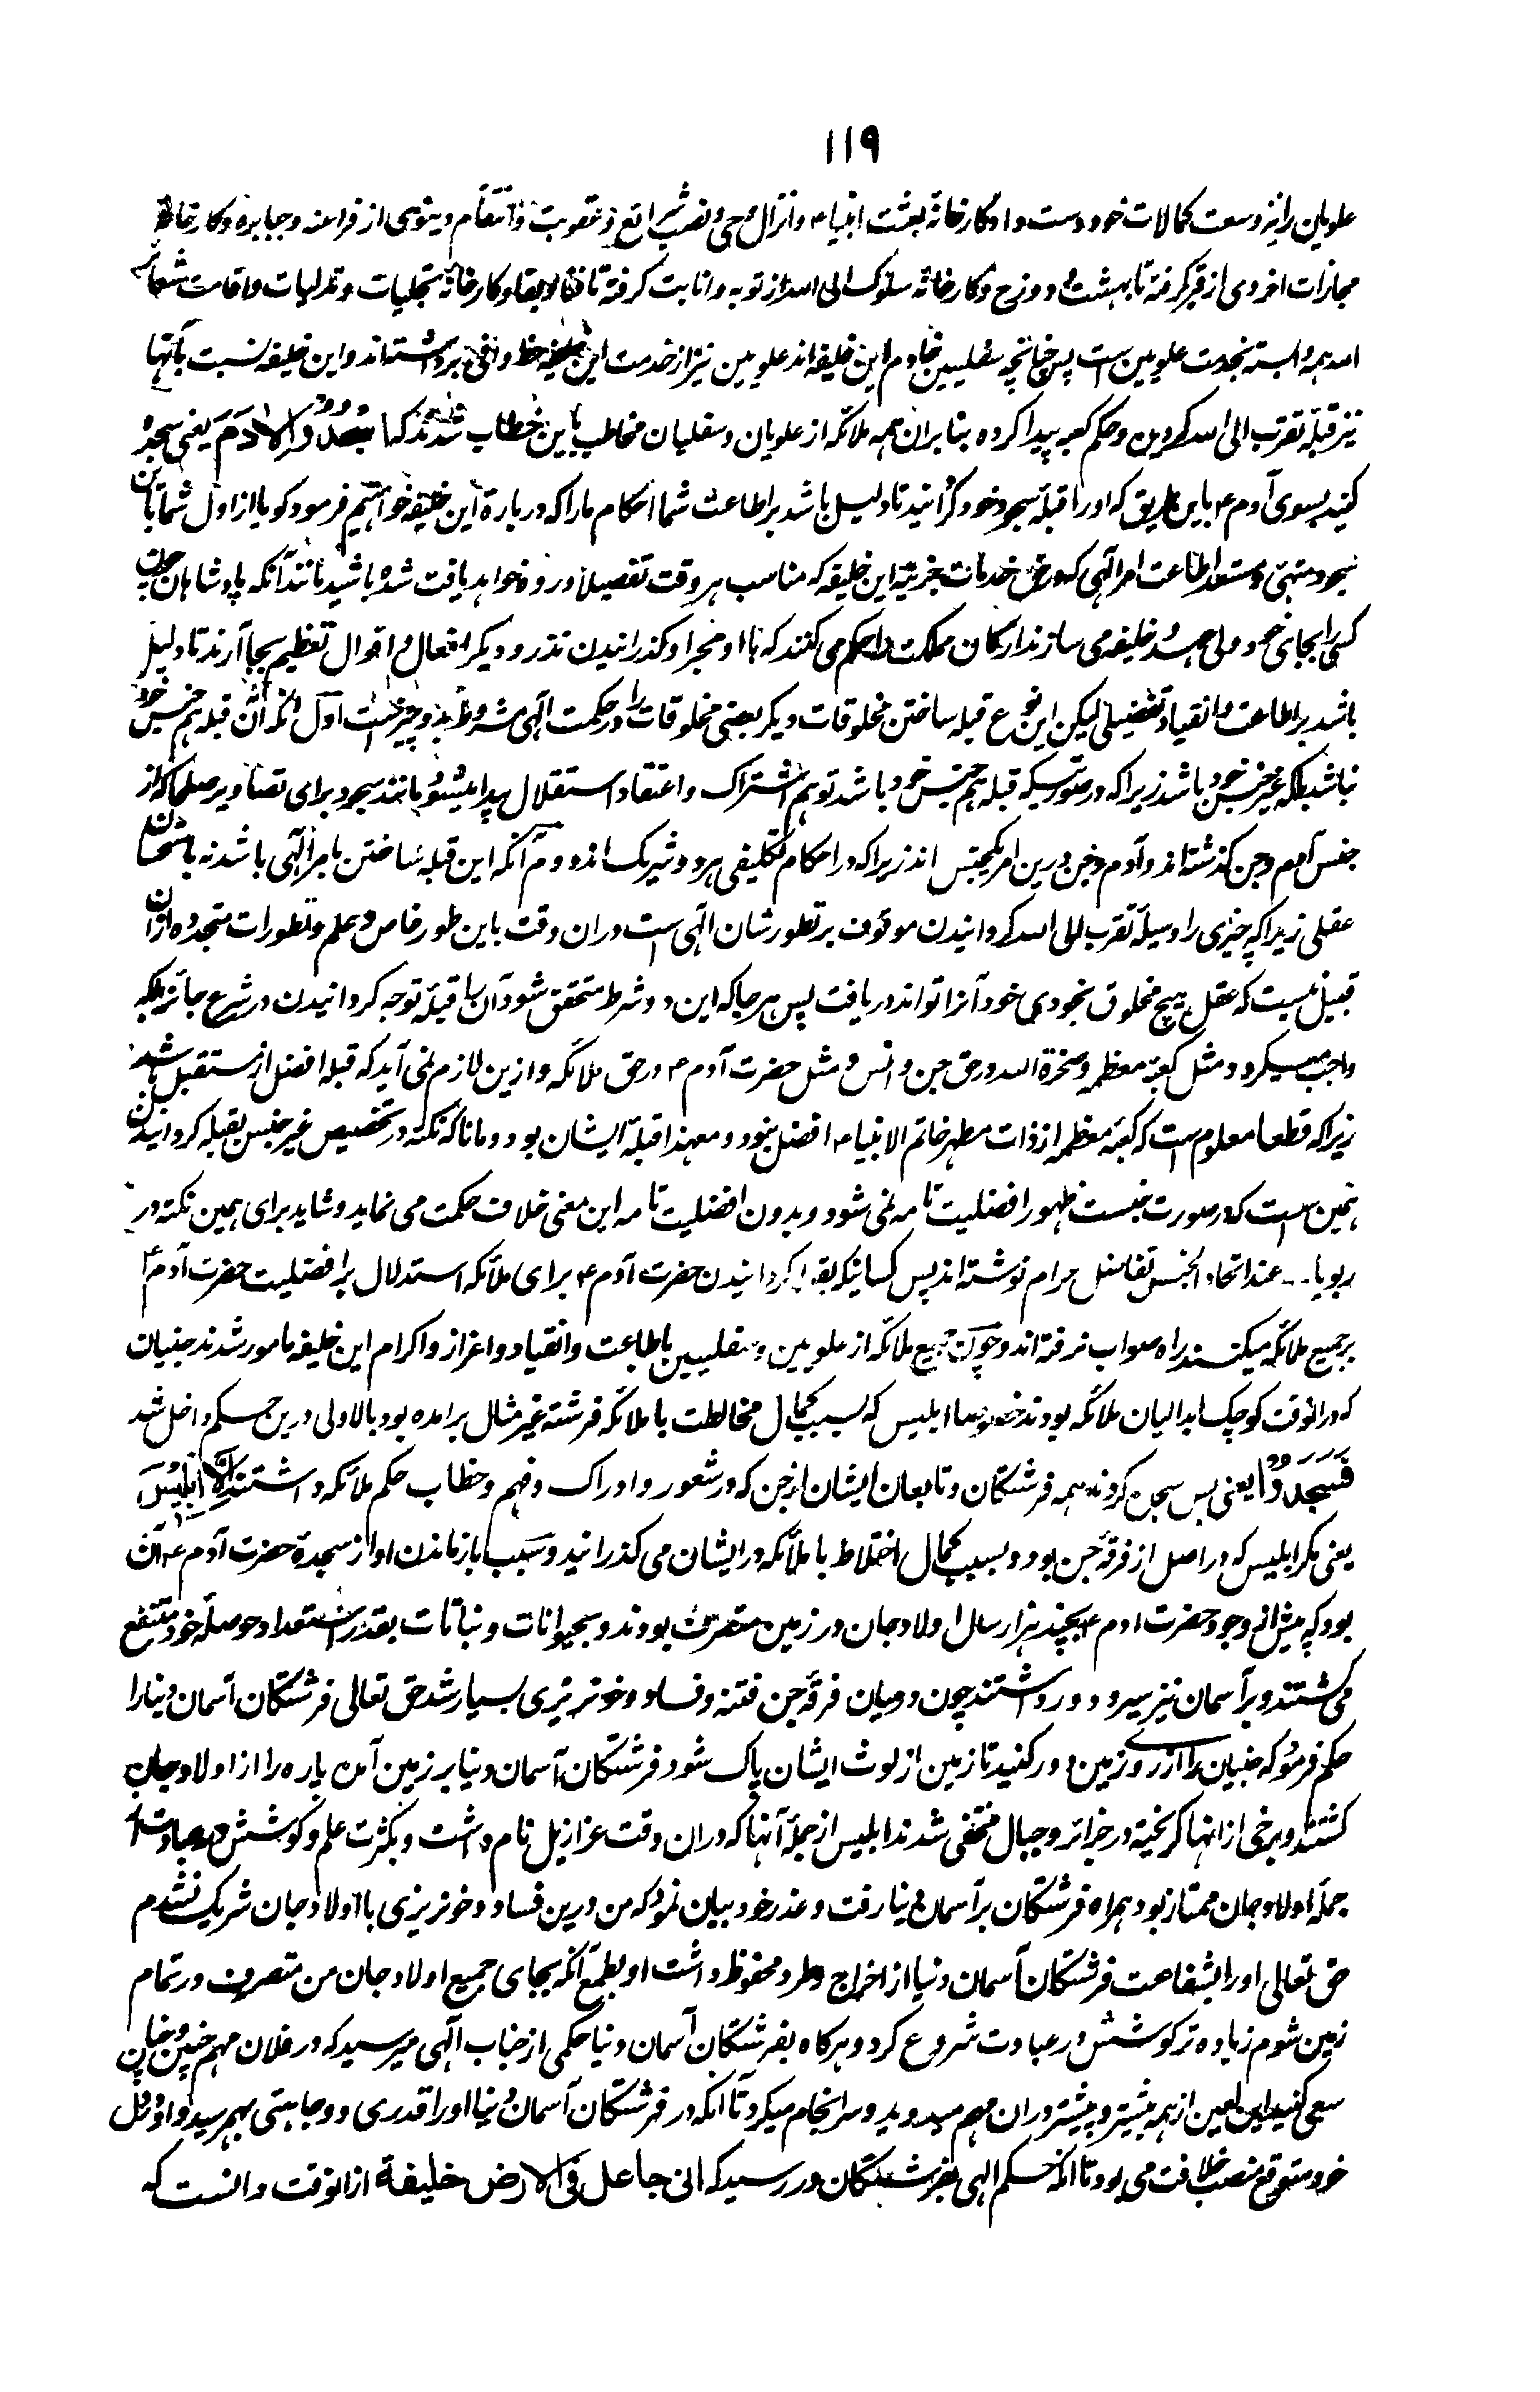 ١١٩
علویان را نیز وسعت کمالات خود دست داد و کارخانهٔ بعثت انبیاء۴ و انزال وحی و نصب شرایع و عقوبت و انتقام دینوی از فراعنه و جبابره و کارخانهٔ
مجازات اخروی از قبر گرفته تا بهشت و دوزخ و کارخانهٔ سلوک الی الله از توبه و انابت گرفته تا فنا و بقا و کارخانهٔ تجلیات و تدلیات و اقامت شعائر
الله همه وابسته بخدمت علویین است پس چنانچه سفلیین خادم این خلیفه اند علویین نیز از خدمت این خلیفه حظ وافی برداشته اند و این خلیفه نسبت بآنها
نیز قبلهٔ تقرب الی الله گردید و حکم کعبه پیدا کرده بنا بران همه ملائکه از علویان و سفلیان مخاطب باین خطاب شدند که اسْجُدُوْا لِاٰدَمَ یعنی سجده
کنید بسوی آدم۴ باین طریق که او را قبلهٔ سجود خود گردانید تا دلیل باشد بر اطاعت شما احکام ما را که دربارهٔ این خلیفه خواهیم فرمود گویا از اول شما باین
سجود متهیّی و مستعد اطاعت امر الٰهی که در حق خدمات جزئیهٔ این خلیفه که مناسب هر وقت تفصیلاً ورود خواهد یافت شده باشید مانند آنکه پادشاهان چون
کسی را بجای خود ولی عهد و خلیفه می سازند ارکان مملکت را حکم می کنند که با او مجرا و گذرانیدن نذر و دیگر افعال و اقوال تعظیم بجا آرند تا دلیل
باشد بر اطاعت و انقیاد تفضیلی لیکن این نوع قبله ساختن مخلوقات دیگر بعضی مخلوقات را در حکمت الٰهی مشروط بدو چیز است اول آنکه آن قبله هم جنس خود
نباشد بلکه غیر جنس خود باشد زیرا که در صورتیکه قبله هم جنس خود باشد توهم اشتراک و اعتقاد استقلال پیدا میشود مانند سجود برای تصاویر صلحا که از
جنس آدم و جن گذشته اند و آدم و جن درین امر یکجنس اند زیرا که در احکام تکلیفی هر دو شریک اند دوم آنکه این قبله ساختن بامر الٰهی باشد نه باستحسان
عقلی زیرا که چیزی را وسیلهٔ تقرب الی الله گردانیدن موقوف بر تطور شان الٰهی است دران وقت باین طور خاص و علم تطورات متجدده ازان
قبیل نیست که عقل هیچ مخلوق بخودی خود آنرا تواند دریافت پس هر جا که این دو شرط متحقق شود آن را قبلهٔ توجه گردانیدن در شرع جائز بلکه
واجب میگردد مثل کعبهٔ معظمه و صخرة الله در حق جن و انس و مثل حضرت آدم۴ در حق ملائکه و ازین لازم نمی آید که قبله افضل از مستقبل باشد
زیرا که قطعا معلوم است که کعبهٔ معظمه از ذات مطهر خاتم الانبیاء۴ افضل نبود و معهذا قبلهٔ ایشان بود و مانا که نکته در تخصیص غیر جنس بقبله گردانیدن
همین است که در صورت جنسیت ظهور افضلیت تامه نمی شود و بدون افضلیت تامه این معنی خلاف حکمت می نماید و شاید برای همین نکته در
ربویات عند اتحاد الجنس تفاضل حرام نوشته اند پس کسانیکه بقبله گردانیدن حضرت آدم۴ برای ملائکه استدلال بر افضلیت حضرت آدم۴
بر جمیع ملائکه میکنند راه صواب نرفته اند و چون جمیع ملائکه از علویین و سفلیین باطاعت و انقیاد و اعزاز و اکرام این خلیفه مامور شدند جنیان
که درانوقت کوچک ابدالیان ملائکه بودند خصوصا ابلیس که بسبب کمال مخالطت با ملائکه فرشته غیر مثال برامده بود بالاولی درین حکم داخل شد
فَسَجَدُوْٓا یعنی پس سجده کردند همه فرشتگان و تابعان ایشان از جن که در شعور و ادراک و فهم و خطاب حکم ملائکه داشتند اِلَّآ اِبْلِیْسَ
یعنی مگر ابلیس که در اصل از فرقهٔ جن بود و بسبب کمال اختلاط با ملائکه در ایشان می گذرانید و سبب بازماندن او از سجدهٔ حضرت آدم۴ آن
بود که پیش از وجود حضرت آدم۴ بچند هزار سال اولاد جان در زمین متصرف بودند و بحیوانات و نباتات بقدر استعداد و حوصلهٔ خود متنفع
می گشتند و بر آسمان نیز سیر و دور داشتند چون درمیان فرقهٔ جن فتنه و فساد و خونریزی بسیار شد حق تعالی فرشتگان آسمان دنیا را
حکم فرمود که جنیان را از روی زمین دور کنید تا زمین از لوث ایشان پاک شود فرشتگان آسمان دنیا بر زمین آمده پاره را از اولاد جان
کشتند و برخی از انها گریخته در جزائر و جبال مختفی شدند ابلیس از جملهٔ آنها که دران وقت عزازیل نام داشت و بکثرت علم و کوشش در عبادت از
جمله اولاد جان ممتاز بود همراه فرشتگان بر آسمان دنیا رفت و عذر خود بیان نمود که من درین فساد و خونریزی با اولاد جان شریک نشدم
حق تعالی او را بشفاعت فرشتگان آسمان دنیا از اخراج و طرد محفوظ داشت او بطمع آنکه بجای جمیع اولاد جان من متصرف در تمام
زمین شوم زیاده تر کوشش در عبادت شروع کرد و هرگاه بفرشتگان آسمان دنیا حکمی از جناب الٰهی میرسید که در فلان مهم چنین و چنان
سعی کنید این لعین از همه بیشتر و پیشتر دران مهم میدوید و سرانجام میکرد تا آنکه در فرشتگان آسمان دنیا او را قدری و وجاهتی بهم رسید و او در دل
خود متوقع منصب خلافت می بود تا آنکه حکم الٰهی بفرشتگان در رسید که انی جاعل فی الارض خلیفة ازانوقت دانست که